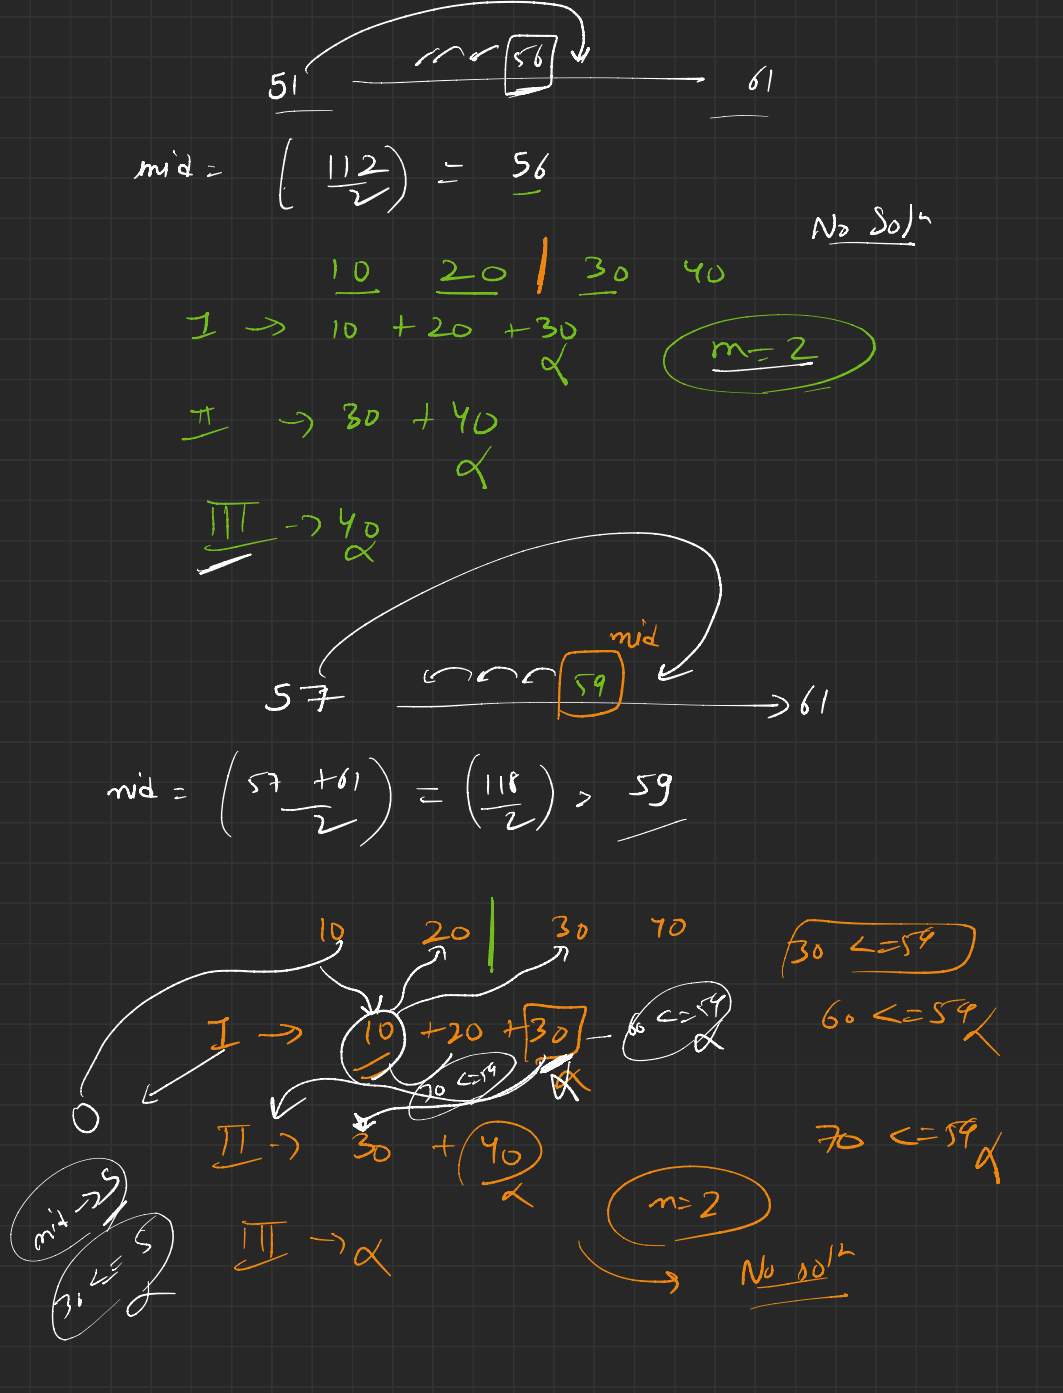 51 56 61
mid = (112/2) = 56
No Soln
10 20 | 30 40
I → 10 + 20 + 30
α
m = 2
II → 30 + 40
α
III → 40
α
mid
57 59 → 61
mid = (57 + 61 / 2) = (118/2) > 59
10 20 | 30 40
30 <= 59
I → 10 + 20 + 30 - 60 <= 59 α
60 <= 59 α
α
70 <= 59
0
II → 30 + 40
α
70 <= 59 α
mid → 5
m = 2
30 <= 5
α
III → α
No soln